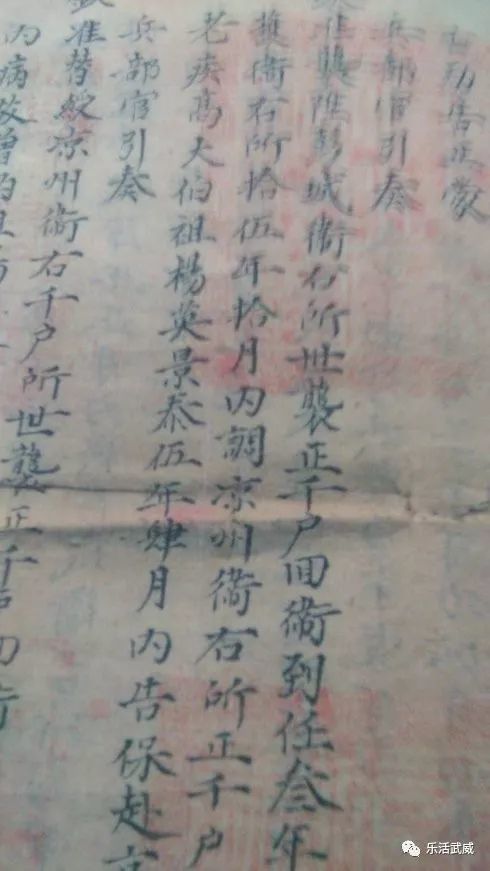 兵部官引奏
准襲陞彭城衛右所世襲正千户回衛到任叁年
護衛右所拾伍年拾月内調凉州衛右所正千户
老疾高大伯祖楊英景泰伍年肆月内告保赴京
兵部官引奏
准替授凉州衛右千户所世襲正千户
内病故曾伯祖
乐活武威